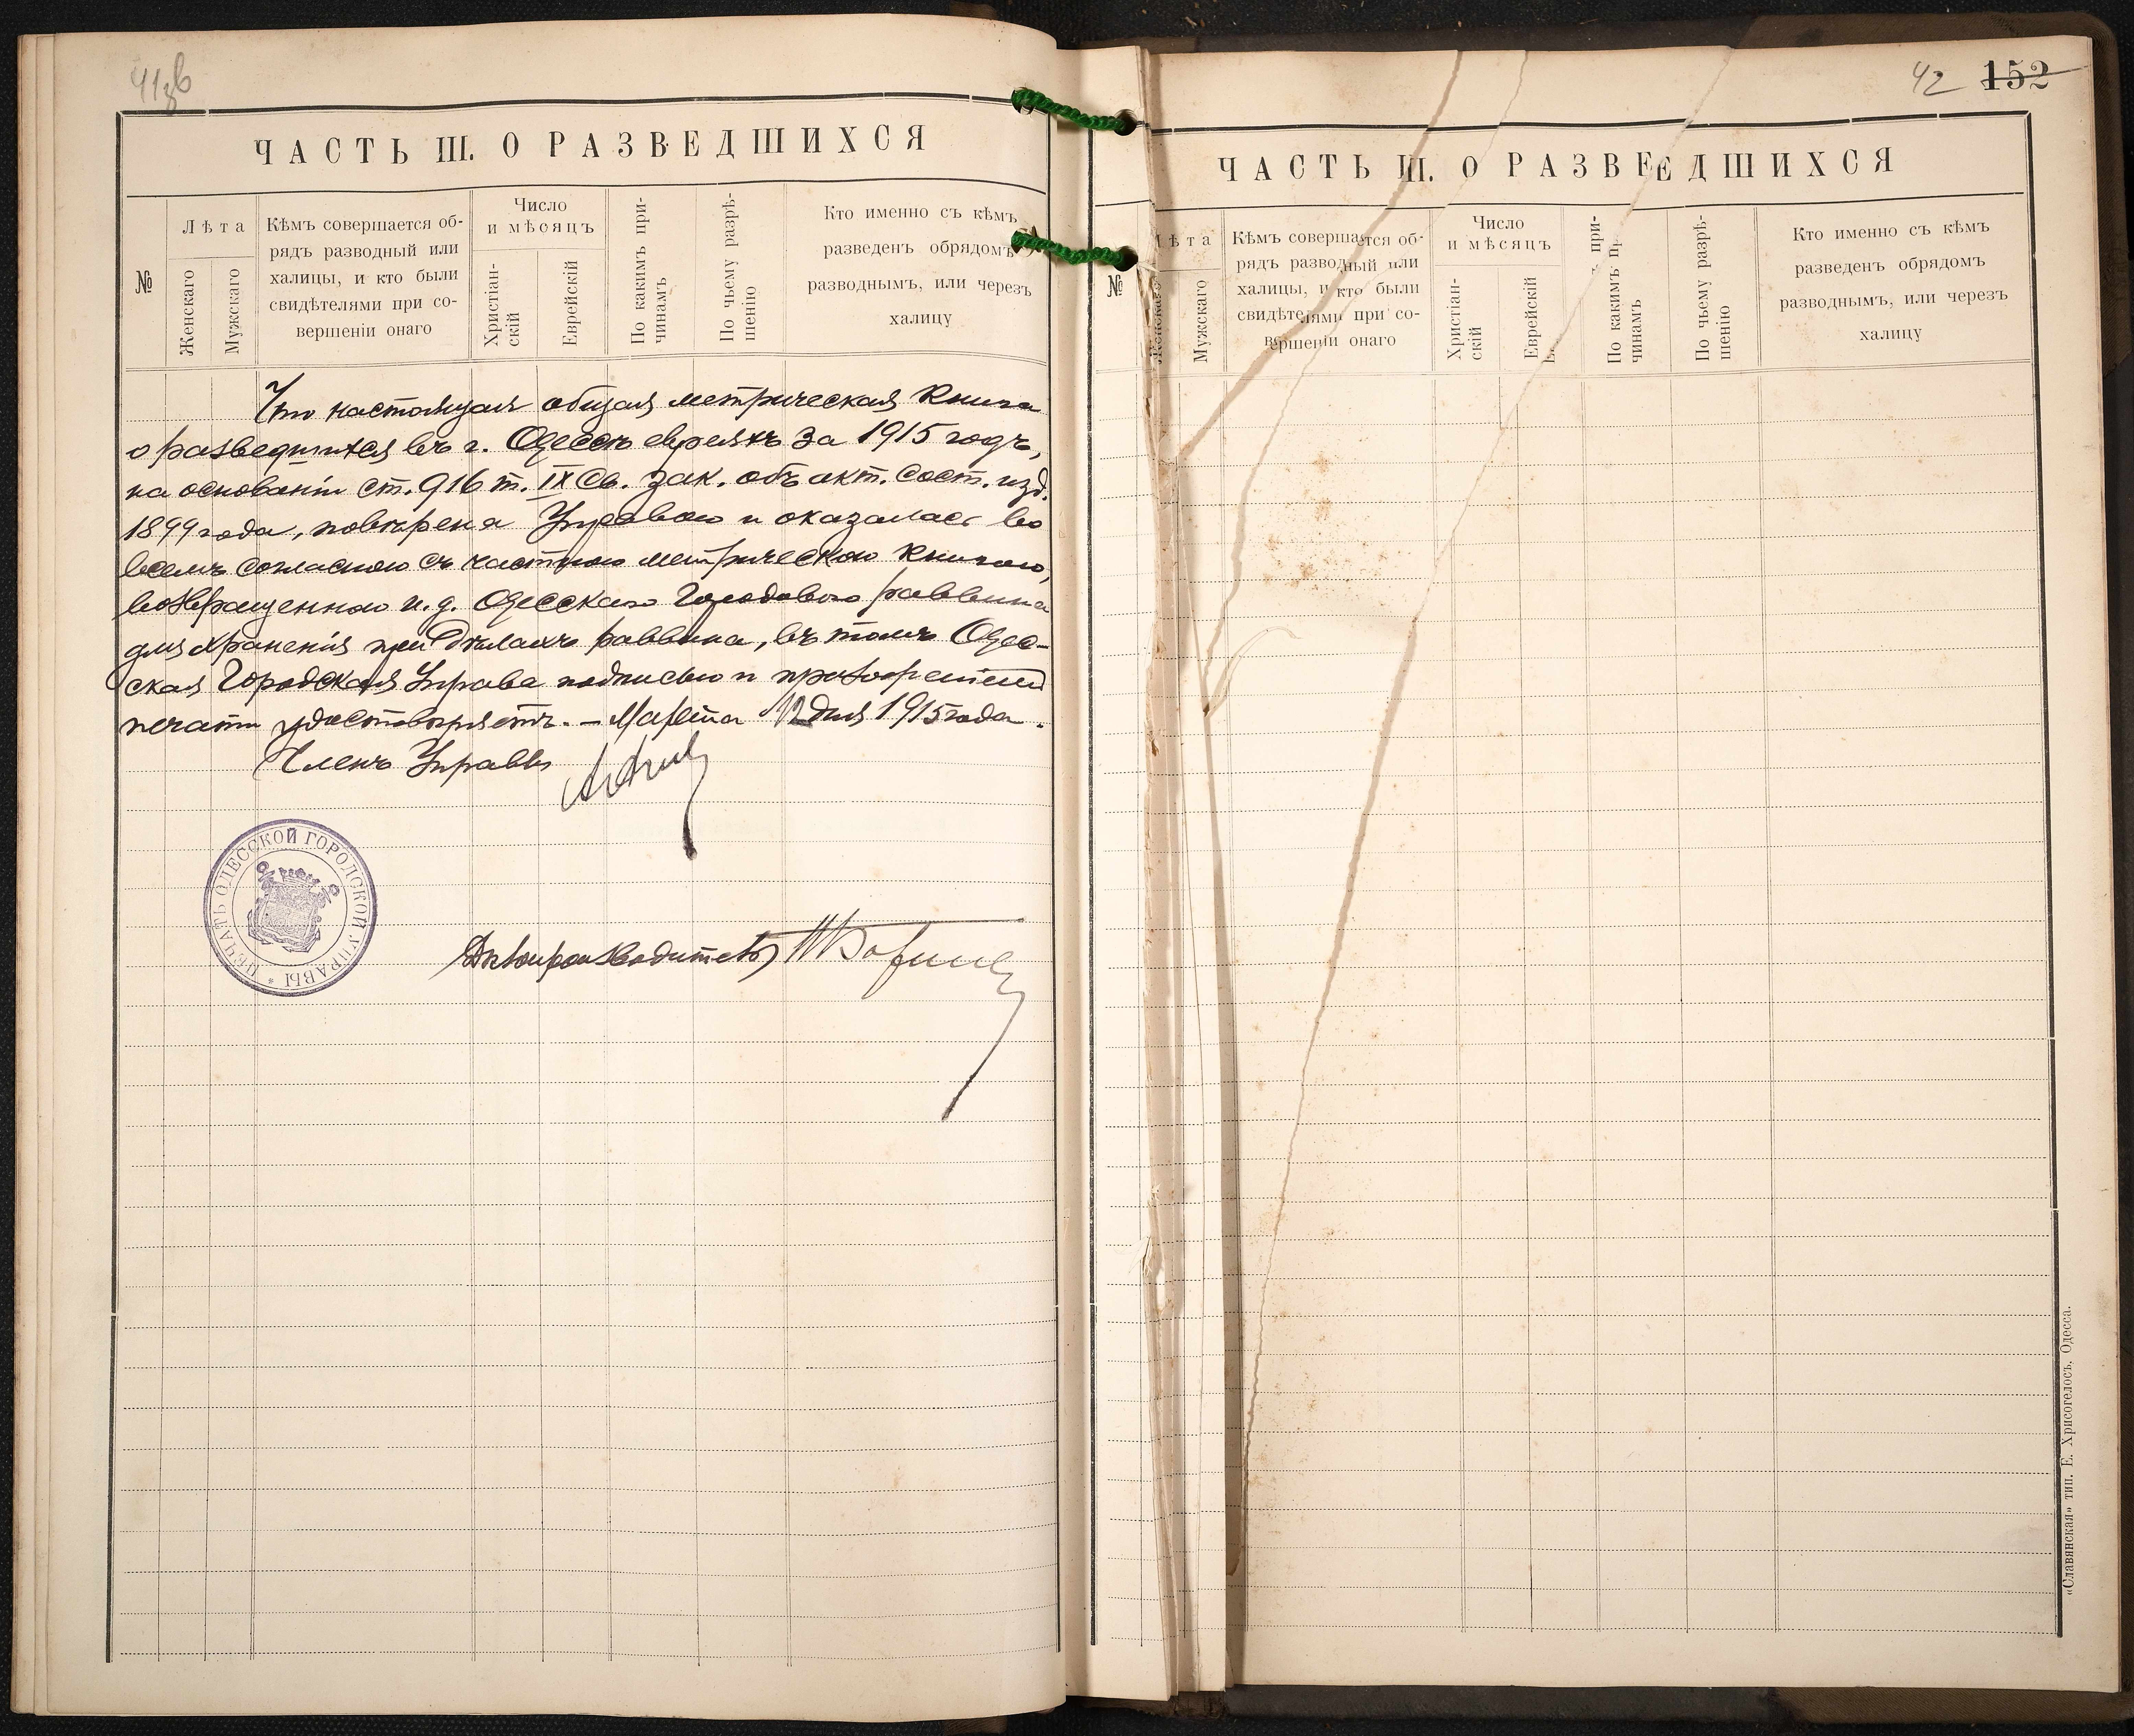 41зв
ЧАСТЬ III. О РАЗВЕДШИХСЯ
№
Лѣта
Женскаго
Мужскаго
Кѣмъ совершается об-
рядъ разводный или
халицы, и кто были
свидѣтелями при со-
вершеніи онаго
Число
и мѣсяцъ
Христіан-
скій
Еврейскій
По какимъ при-
чинамъ
По чьему разрѣ-
шенію
Кто именно съ кѣмъ
разведенъ обрядомъ
разводнымъ, или черезъ
халицу
Что настоящая общая метрическая книга
о разведшихся въ г. Одессѣ евреяхъ за 1915 годъ,
на основаніи ст. 916 т. IX Св. Зак. объ акт. сост. изд.
1899 года, повѣрена Управою и оказалась во
всемъ согласною съ частною метрическою книгою,
возвращенною и. д. Одесскаго Городового раввина
для храненія при дѣлахъ раввина, въ томъ Одес-
ская Городская Управа подписью и приложеніемъ
печати удостовѣряетъ. – Марта 12 дня 1915 года.
Членъ Управы
ПЕЧАТЬ ОДЕССКОЙ ГОРОДСКОЙ УПРАВЫ *
Дѣлопроизводитель
42 152
ЧАСТЬ III. О РАЗВЕДШИХСЯ
№
Лѣта
Женскаго
Мужскаго
Кѣмъ совершается об-
рядъ разводный или
халицы, и кто были
свидѣтелями при со-
вершеніи онаго
Число
и мѣсяцъ
Христіан-
скій
Еврейскій
По какимъ при-
чинамъ
По чьему разрѣ-
шенію
Кто именно съ кѣмъ
разведенъ обрядомъ
разводнымъ, или черезъ
халицу
«Славянская» тип. Е. Хрисогелосъ, Одесса.